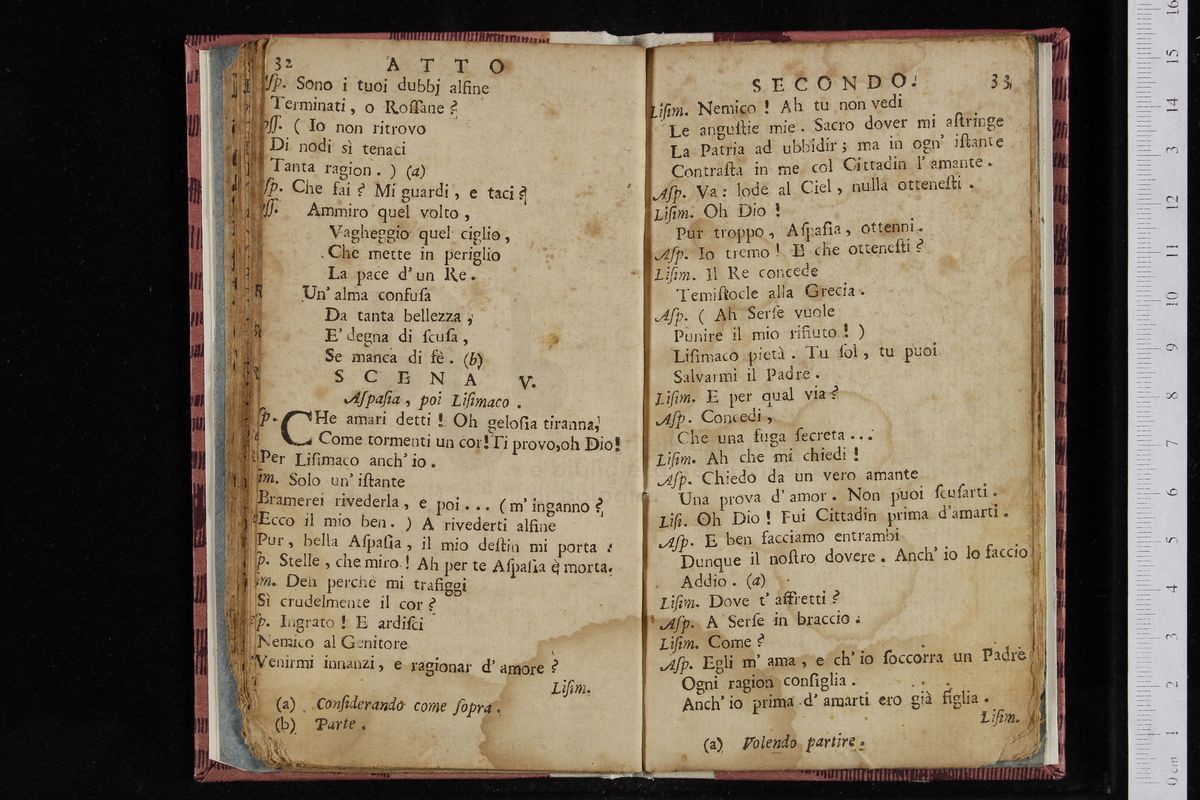 32 ATTO
ſp. Sono i tuoi dubbj alfine
Terminati, o Roſſane?
oſſ. ( Io non ritrovo
Di nodi sì tenaci
Tanta ragion. ) (a)
ſp. Che fai? Mi guardi, e taci?
oſſ. Ammiro quel volto,
Vagheggio quel ciglio,
Che mette in periglio
La pace d'un Re.
Un' alma confuſa
Da tanta bellezza,
E' degna di ſcuſa,
Se manca di fè. (b)
SCENA V.
Aſpaſia, poi Liſimaco.
ſp. CHe amari detti! Oh geloſia tiranna,
Come tormenti un cor! Ti provo, oh Dio!
Per Liſimaco anch' io.
im. Solo un' iſtante
Bramerei rivederla, e poi... (m' inganno?
Ecco il mio ben. ) A rivederti alfine
Pur, bella Aſpaſia, il mio deſtin mi porta.
p. Stelle, che miro! Ah per te Aſpaſia è morta.
im. Deh perchè mi trafiggi
Sì crudelmente il cor?
ſp. Ingrato! E ardiſci
Nemico al Genitore
Venirmi innanzi, e ragionar d' amore?
Liſim.
(a) Conſiderando come ſopra.
(b) Parte.
SECONDO. 33
Liſim. Nemico! Ah tu non vedi
Le anguſtie mie. Sacro dover mi aſtringe
La Patria ad ubbidir; ma in ogn' iſtante
Contraſta in me col Cittadin l' amante.
Aſp. Va: lode al Ciel, nulla otteneſti.
Liſim. Oh Dio!
Pur troppo, Aſpaſia, ottenni.
Aſp. Io tremo! E che otteneſti?
Liſim. Il Re concede
Temiſtocle alla Grecia.
Aſp. ( Ah Serſe vuole
Punire il mio rifiuto! )
Liſimaco pietà. Tu ſol, tu puoi
Salvarmi il Padre.
Liſim. E per qual via?
Aſp. Concedi,
Che una fuga ſecreta...
Liſim. Ah che mi chiedi!
Aſp. Chiedo da un vero amante
Una prova d' amor. Non puoi ſcuſarti.
Liſi. Oh Dio! Fui Cittadin prima d'amarti.
Aſp. E ben facciamo entrambi
Dunque il noſtro dovere. Anch' io lo faccio
Addio. (a)
Liſim. Dove t' affretti?
Aſp. A Serſe in braccio.
Liſim. Come?
Aſp. Egli m' ama, e ch' io ſoccorra un Padre
Ogni ragion conſiglia.
Anch' io prima d' amarti ero già figlia.
Liſim.
(a) Volendo partire.
0 cm 1 2 3 4 5 6 7 8 9 10 11 12 13 14 15 16